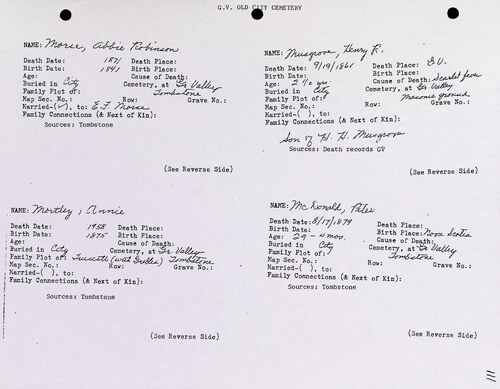 G.V. OLD CITY CEMETERY
NAME: Morse, Abbie Robinson
Death Date: 1871 Death Place:
Birth Date: 1841 Birth Place:
Age: Cause of Death:
Buried in City Cemetery, at Gr Valley
Family Plot of: Tombstone
Map Sec. No.: Row: Grave No.:
Married-(✓), to: E.F. Morse
Family Connections (& Next of Kin):
Sources: Tombstone
(See Reverse Side)
NAME: Musgrove, Henry R.
Death Date: 9/19/1861 Death Place: G.V.
Birth Date: Birth Place:
Age: 2 1/2 mo Cause of Death: Scarlet fever
Buried in City Cemetery, at Gr Valley
Family Plot of: Masonic ground
Map Sec. No.: Row: Grave No.:
Married-( ), to:
Family Connections (& Next of Kin):
Son of H. H. Musgrove
Sources: Death records GV
(See Reverse Side)
NAME: Mortley, Annie
Death Date: 1958 Death Place:
Birth Date: 1875 Birth Place:
Age: Cause of Death:
Buried in City Cemetery, at Gr. Valley
Family Plot of: (with Tombstone
Map Sec. No.: Row: Grave No.:
Married-( ), to:
Family Connections (& Next of Kin):
Sources: Tombstone
(See Reverse Side)
NAME: McDonald, Peter
Death Date: 8/17/1879 Death Place:
Birth Date: Birth Place: Nova Scotia
Age: 29 - 4 mos. Cause of Death:
Buried in City Cemetery, at Gr Valley
Family Plot of: Tombstone
Map Sec. No.: Row: Grave No.:
Married-( ), to:
Family Connections (& Next of Kin):
Sources: Tombstone
(See Reverse Side)